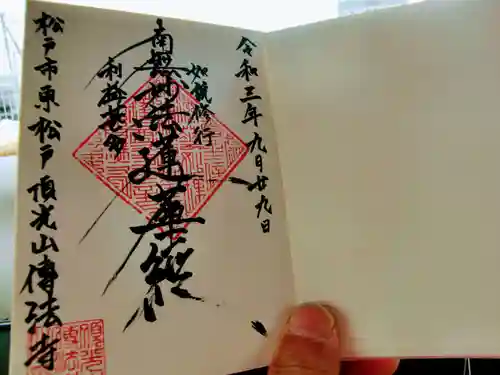 令和三年九月廿九日
如説修行
南無妙法蓮華経
利益甚多
松戸市東松戸 頂光山傳法寺